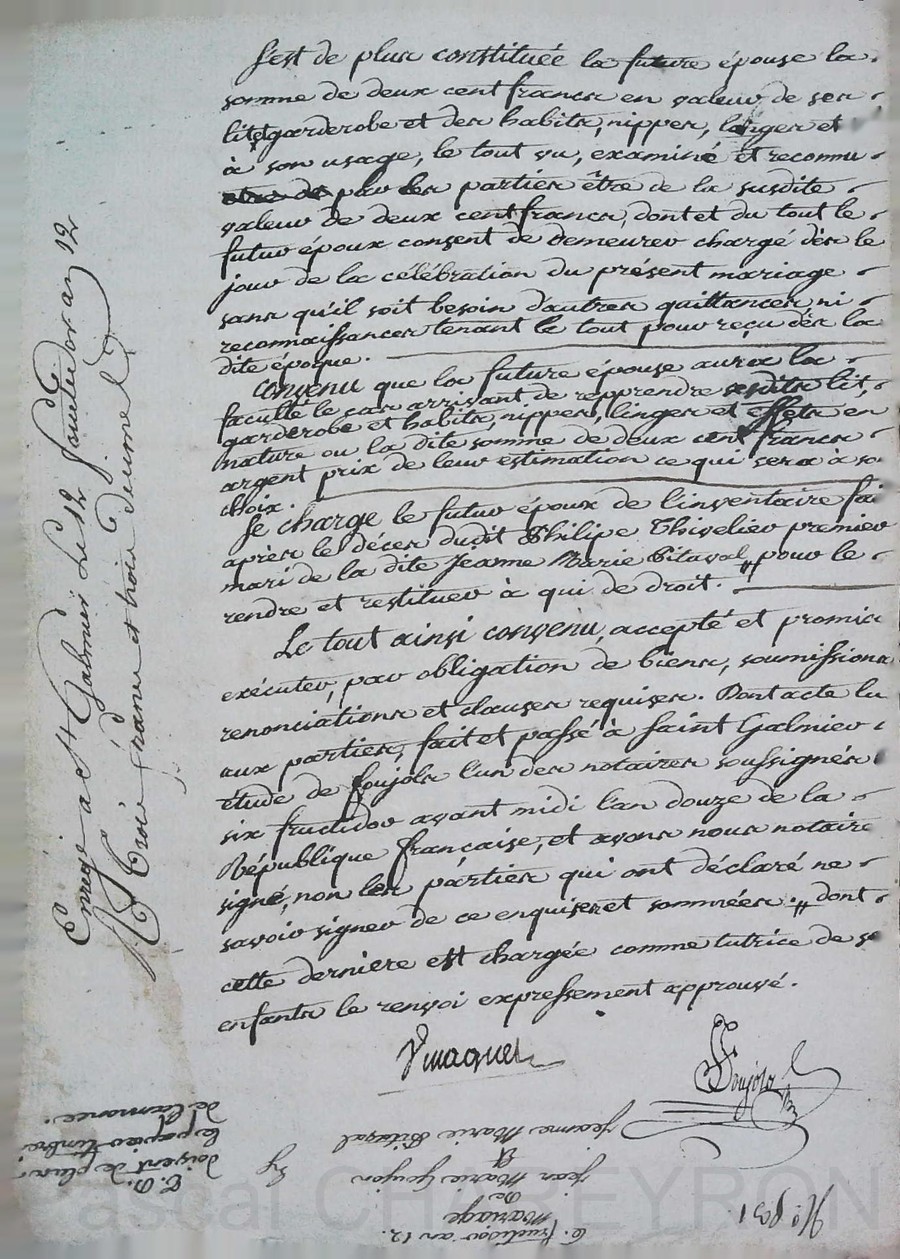 S'est de plus constituée la future épouse la
somme de deux cent francs en valeur de ses
lit, et garderobe et des habits, nippes, linges et
à son usage, le tout vu, examiné et reconnu
par les parties être de la susdite
valeur de deux cent francs, dont et du tout le
futur époux consent de demeurer chargé dès le
jour de la célébration du présent mariage
sans qu'il soit besoin d'autres quittances ni
reconnaissances tenant le tout pour reçu dès la
dite époque.
Convenu que la future épouse aura la
faculté le cas arrivant de reprendre lit,
garderobe et habits, nippes, linges et effets en
nature ou la dite somme de deux cent francs
argent prix de leur estimation ce qui sera à so
choix.
Se charge le futur époux de l'inventaire fai
après le décès dudit Philipe Thivelier premier
mari de la dite Jeanne Marie Pitaval // pour le
rendre et restituer à qui de droit.
Le tout ainsi convenu, accepté et promis
exécuter, par obligation de biens, soumissions
renonciations et clauses requises. Dont acte lu
aux parties, fait et passé à Saint Galmier
étude de Soujols l'un des notaires soussignés
six fructidor avant midi l'an douze de la
République française, et avons nous notaire
signé, non les parties qui ont déclaré ne
savoir signer de ce enquises et sommées. // dont
cette derniere est chargée comme tutrice de se
enfants le renvoi expressement approuvé.
Soujols
Enregé a St Galmier Le 12 fructidor an 12
trois francs et trois decimes
No. 831.
6. fructidor an 12.
Mariage
De
jean Marie Goujon
Et
jeanne Marie Pitaval
doivent de plus
le papier timbré